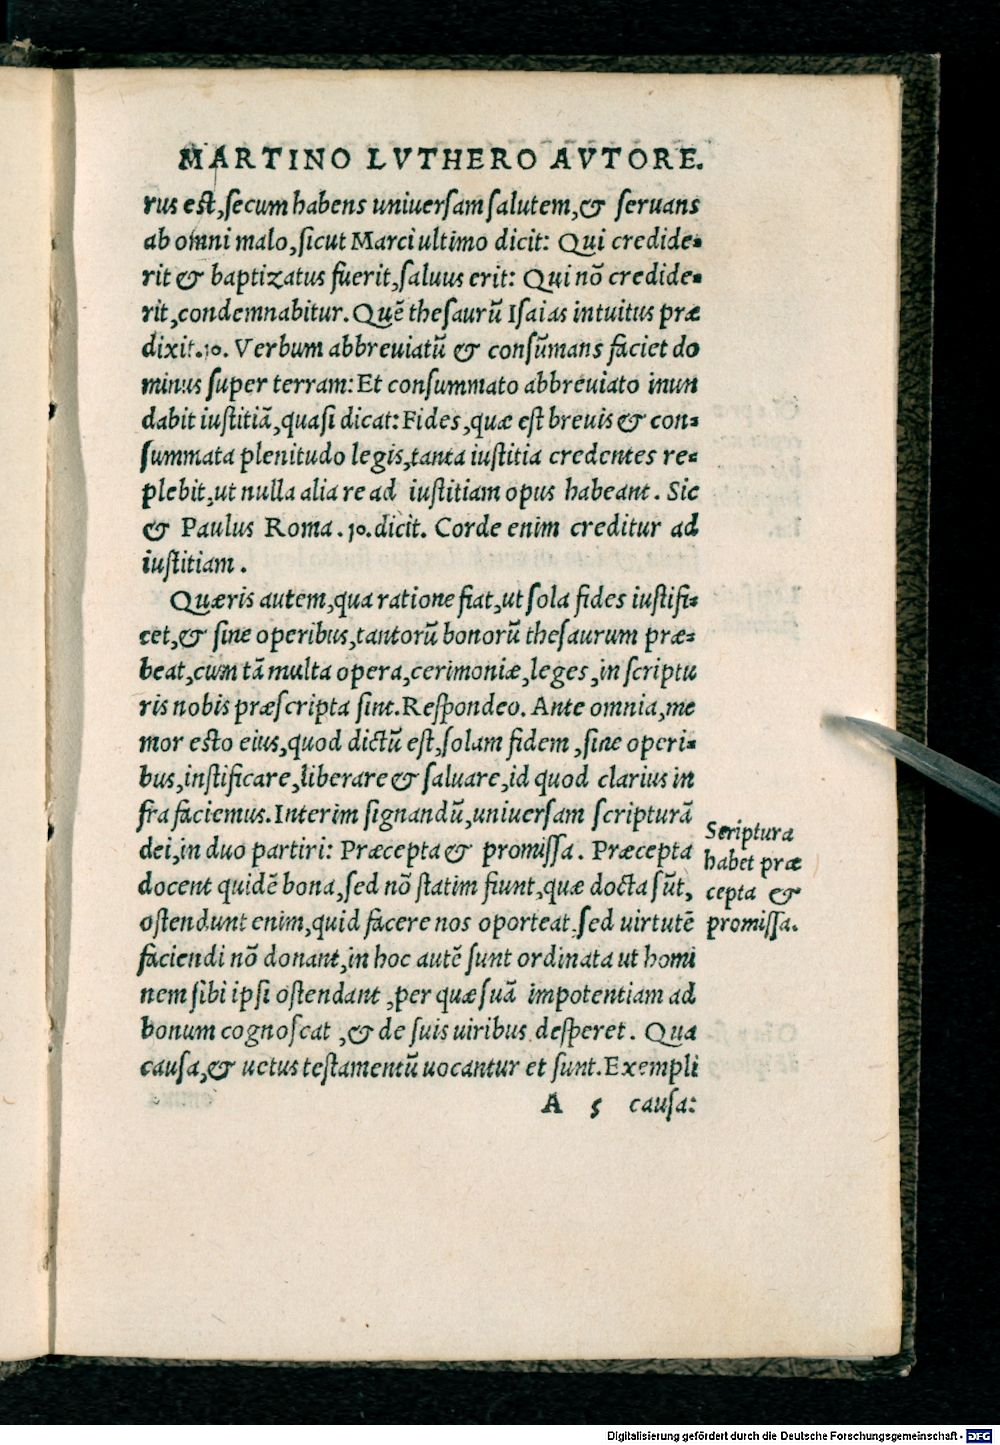 MARTINO LVTHERO AVTORE.
rus est, secum habens uniuersam salutem, & seruans
ab omni malo, sicut Marci ultimo dicit: Qui credide-
rit & baptizatus fuerit, saluus erit: Qui nō credide-
rit, condemnabitur. Quē thesaurū Isaias intuitus præ
dixit. 10. Verbum abbreuiatū & consūmans faciet do
minus super terram: Et consummato abbreuiato inun
dabit iustitiā, quasi dicat: Fides, quæ est breuis & con-
summata plenitudo legis, tanta iustitia credentes re-
plebit, ut nulla alia re ad iustitiam opus habeant. Sic
& Paulus Roma. 10. dicit. Corde enim creditur ad
iustitiam.
Quæris autem, qua ratione fiat, ut sola fides iustifi-
cet, & sine operibus, tantorū bonorū thesaurum præ-
beat, cum tā multa opera, cerimoniæ, leges, in scriptu
ris nobis præscripta sint. Respondeo. Ante omnia, me
mor esto eius, quod dictū est, solam fidem, sine operi-
bus, iustificare, liberare & saluare, id quod clarius in
fra faciemus. Interim signandū, uniuersam scripturā
dei, in duo partiri: Præcepta & promissa. Præcepta
docent quidē bona, sed nō statim fiunt, quæ docta sūt,
ostendunt enim, quid facere nos oporteat, sed uirtutē
faciendi nō donant, in hoc autē sunt ordinata ut homi
nem sibi ipsi ostendant, per quæ suā impotentiam ad
bonum cognoscat, & de suis uiribus desperet. Qua
causa, & uetus testamentū uocantur et sunt. Exempli
A 5 causa:
Scriptura
habet præ
cepta &
promissa.
Digitalisierung gefördert durch die Deutsche Forschungsgemeinschaft - DFG